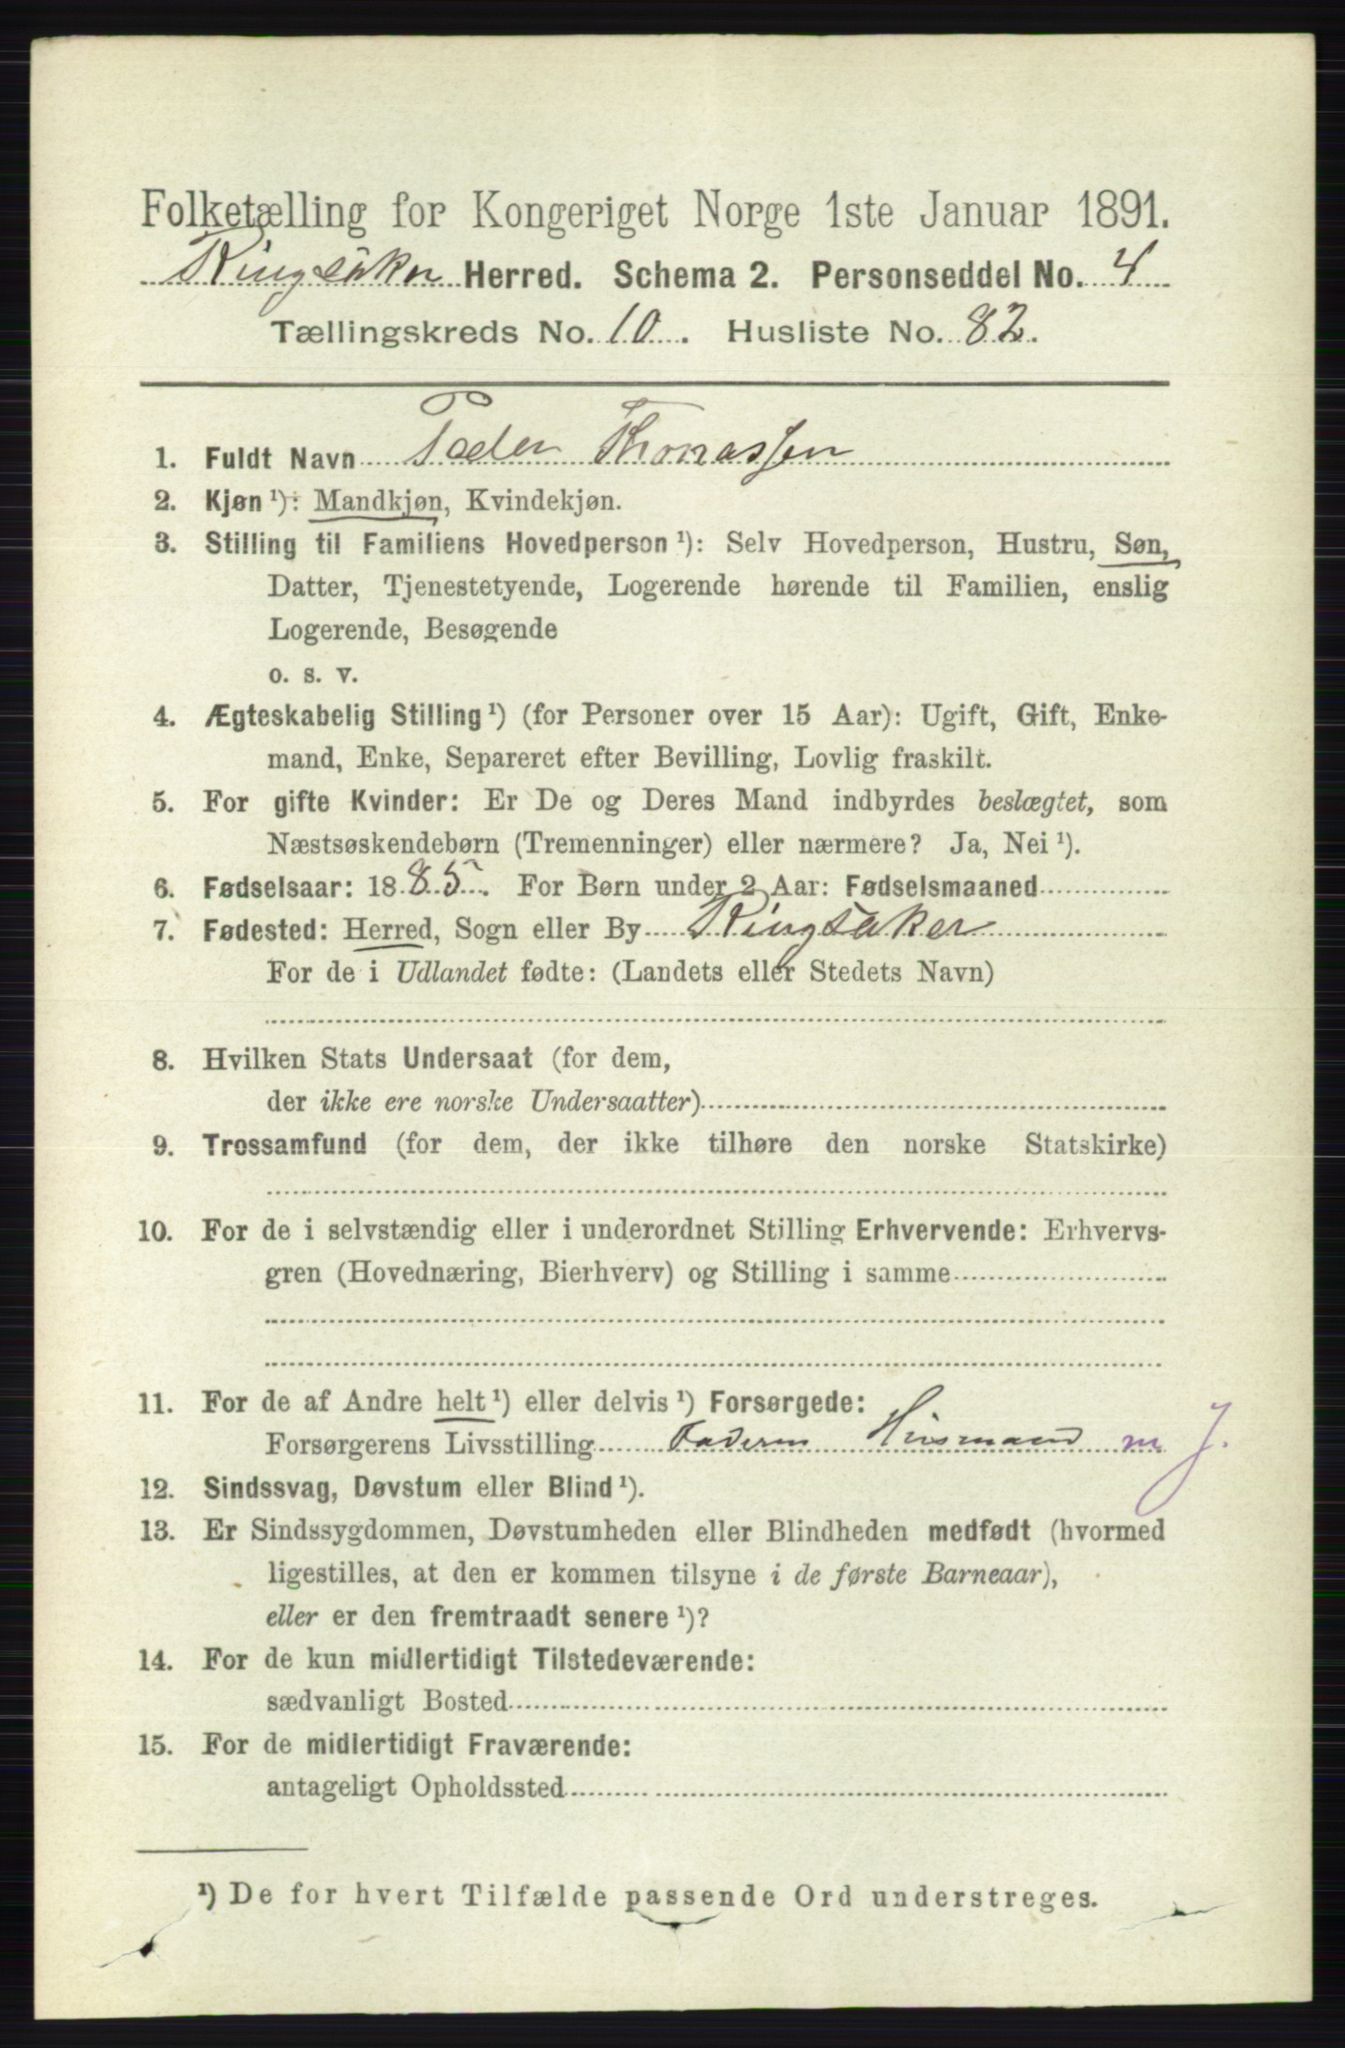 Folketælling for Kongeriget Norge 1ste Januar 1891.
Ringsaker Herred. Schema 2. Personseddel No. 4
Tællingskreds No. 10. Husliste No. 82.
1. Fuldt Navn Peder Thomassen
2. Kjøn ¹): Mandkjøn, Kvindekjøn.
3. Stilling til Familiens Hovedperson ¹): Selv Hovedperson, Hustru, Søn,
Datter, Tjenestetyende, Logerende hørende til Familien, enslig
Logerende, Besøgende
o. s. v.
4. Ægteskabelig Stilling ¹) (for Personer over 15 Aar): Ugift, Gift, Enke-
mand, Enke, Separeret efter Bevilling, Lovlig fraskilt.
5. For gifte Kvinder: Er De og Deres Mand indbyrdes beslægtet, som
Næstsøskendebørn (Tremenninger) eller nærmere? Ja, Nei ¹).
6. Fødselsaar: 1885. For Børn under 2 Aar: Fødselsmaaned
7. Fødested: Herred, Sogn eller By Ringsaker
For de i Udlandet fødte: (Landets eller Stedets Navn)
8. Hvilken Stats Undersaat (for dem,
der ikke ere norske Undersaatter)
9. Trossamfund (for dem, der ikke tilhøre den norske Statskirke)
10. For de i selvstændig eller i underordnet Stilling Erhvervende: Erhvervs-
gren (Hovednæring, Bierhverv) og Stilling i samme
11. For de af Andre helt ¹) eller delvis ¹) Forsørgede:
Forsørgerens Livsstilling Faderen Husmand m J.
12. Sindssvag, Døvstum eller Blind ¹).
13. Er Sindssygdommen, Døvstumheden eller Blindheden medfødt (hvormed
ligestilles, at den er kommen tilsyne i de første Barneaar),
eller er den fremtraadt senere ¹)?
14. For de kun midlertidigt Tilstedeværende:
sædvanligt Bosted
15. For de midlertidigt Fraværende:
antageligt Opholdssted
¹) De for hvert Tilfælde passende Ord understreges.